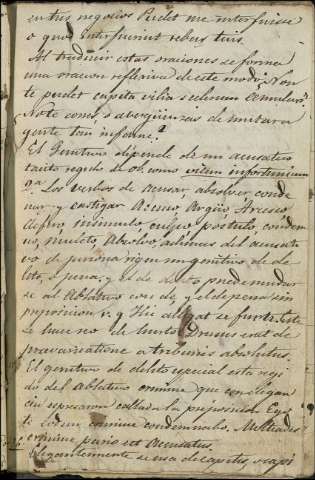 en tus negocios Pudet me interfuisse
o quod interfuerint rebus tuis.
Al traducir estas oraciones se forma
una oracion reflexiva de este modo; Non
te pudet capita vilia scelerum
No te corres, o abergüenzas de imitar a
gente tan infame?
El Genitivo depende de un acusativo
tacito regido de ob, como vitium infortunium
2.ª Los verbos de acusar, absolver, conde
nar, y castigar Acuso, Arguo, Arcesso,
insimulo, culpo, postulo, condem
no, mulcto, Absolvo, ademas del acusati
vo de persona rigen un genitivo de de
lito, o pena; y el de delito puede mudar
se al Ablativo con de, y el de pena sin
preposicion v. g. Hic alligat se furti. Este
se hace reo de hurto Drusus erat de
prevaricatione a tribunis absolutus.
El genitivo de delito especial esta regi
do del ablativo crimine que con elegan
cia expresaron callada la preposicion Ego
te eodem crimine condemnabo. Miltiades
crimine pario est accusatus.
Elegantemente se usa de capitis, o capi